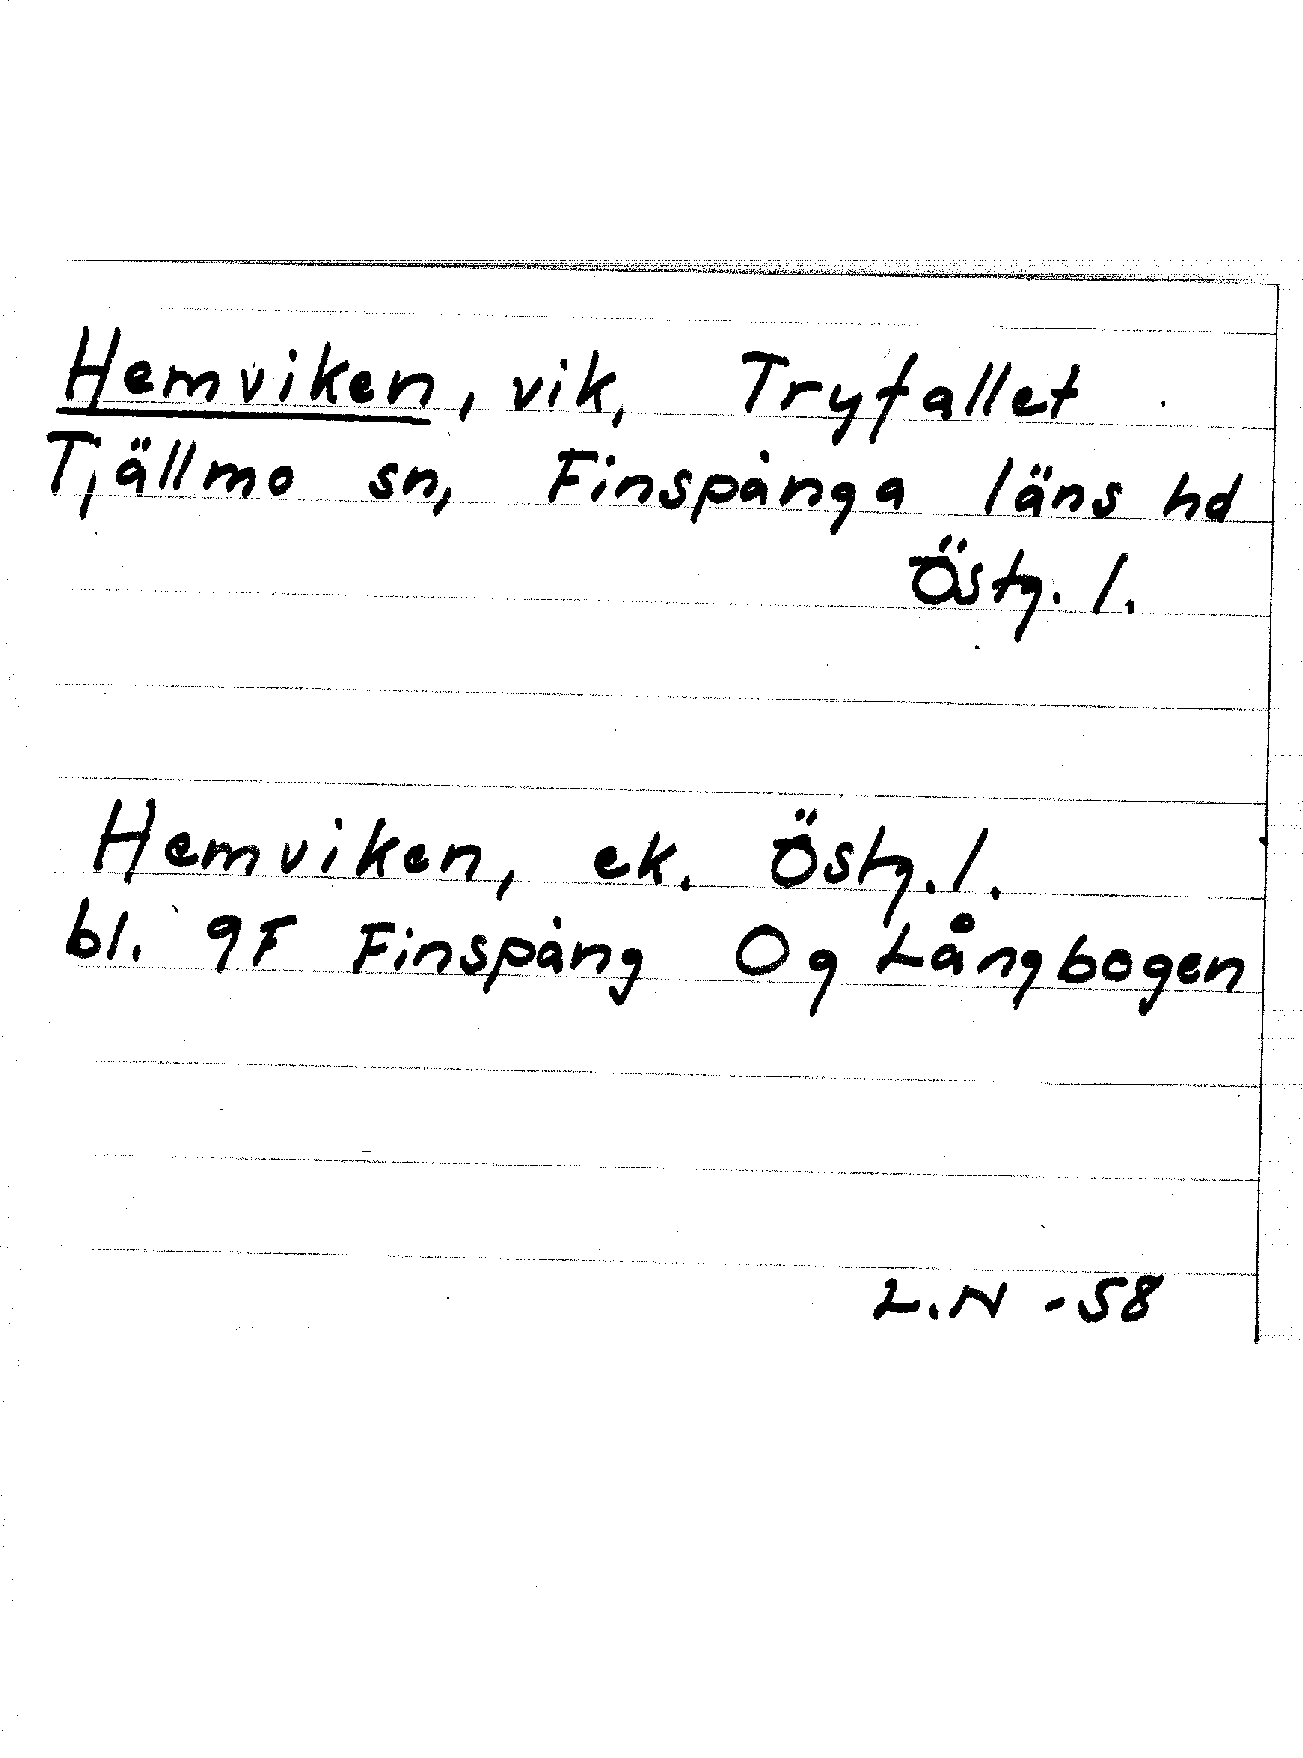 Hemviken, vik, Tryfallet
Tjällmo sn, Finspånga läns hd
Östg. l.
Hemviken, ek. Östg. l.
bl. 9F Finspång Og Långbogen
L.N -58